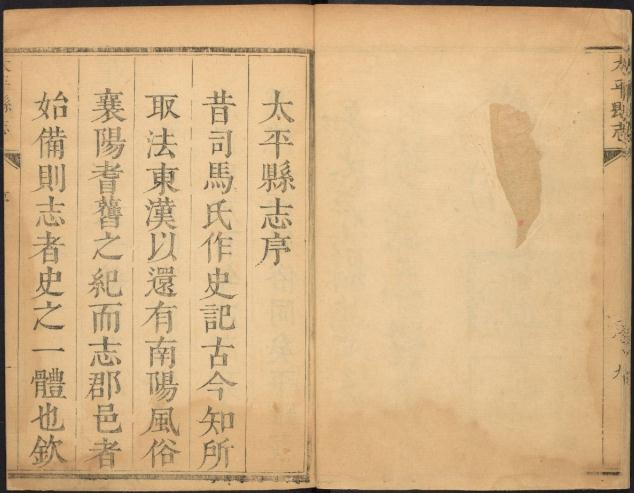 太平縣志
太平縣志序
昔司馬氏作史記古今知所
取法東漢以還有南陽風俗
襄陽耆舊之紀而志郡邑者
始備則志者史之一體也欽
太平縣志